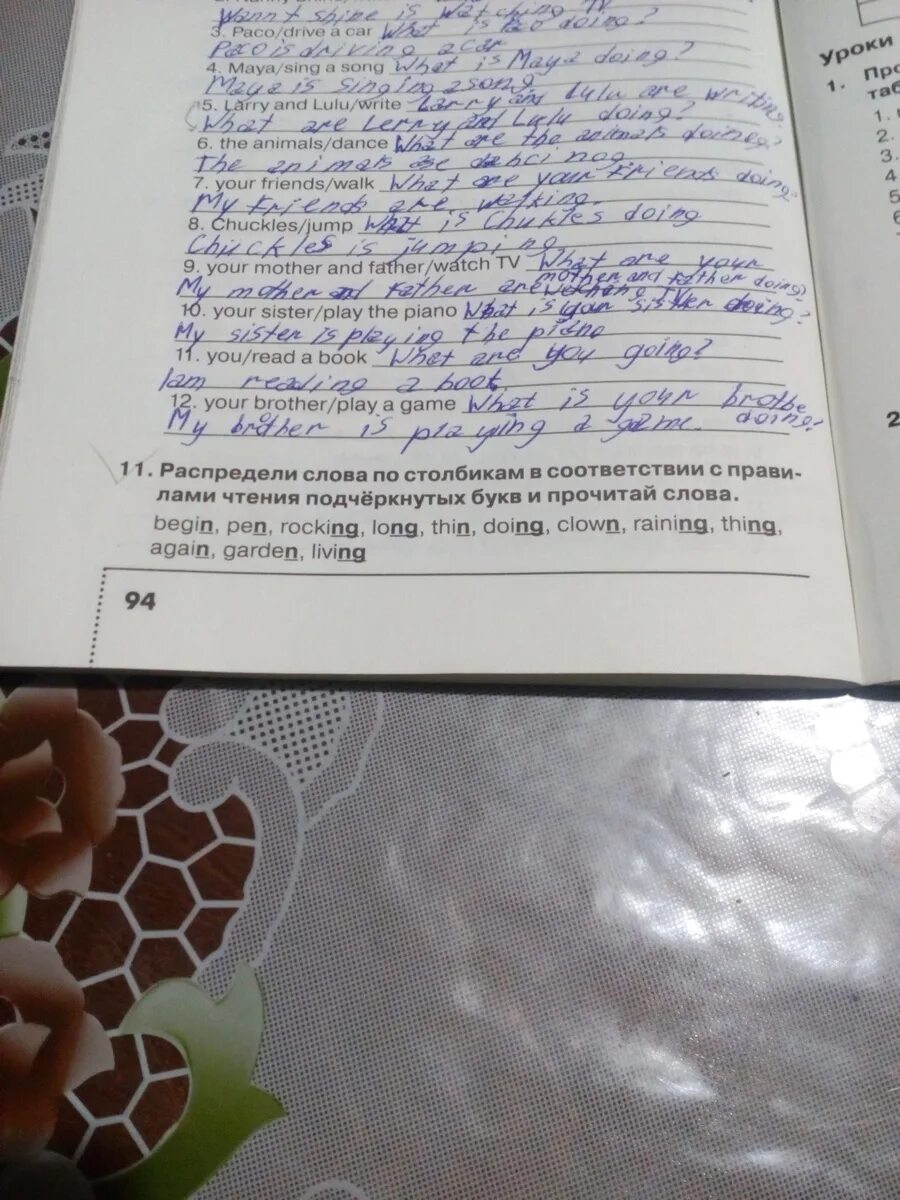 Wannt shine is watching TV
3. Paco/drive a car What is Paco doing?
Paco is driving a car
4. Maya/sing a song What is Maya doing?
Maya is singing a song
5. Larry and Lulu/write Larry and Lulu are writing
What are Lerry and Lulu doing?
6. the animals/dance What are the animals doineg?
The animals are
7. your friends/walk What are your friends doing?
My friends are walking.
8. Chuckles/jump What is Chukles doing
Chuckles is jumping
9. your mother and father/watch TV What are your
mother and father doing?
My mother and father are
10. your sister/play the piano What is your sister doing?
My sister is playing the piano
11. you/read a book What are you going?
I am reading a book.
12. your brother/play a game What is your brothe
doing?
My brother is playing a game.
11. Распредели слова по столбикам в соответствии с прави-
лами чтения подчёркнутых букв и прочитай слова.
begin, pen, rocking, long, thin, doing, clown, raining, thing,
again, garden, living
94
Уроки
1. Про
таб
1.
2.
3.
4
5
2